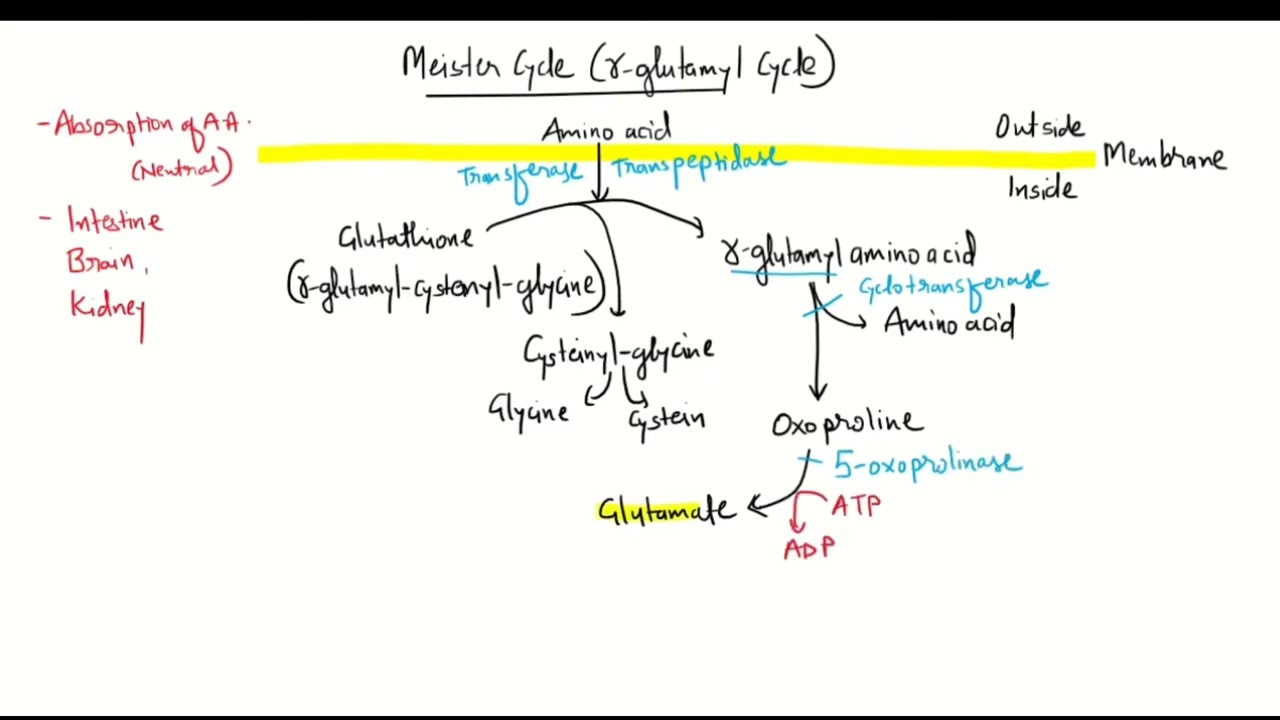 Meister Cycle (γ-glutamyl Cycle)
- Absorption of AA.
(Neutral)
- Intestine
Brain,
Kidney
Amino acid
Outside
Membrane
Inside
Transferase
Transpeptidase
Glutathione
(γ-glutamyl-cystenyl-glycine)
γ-glutamyl amino acid
Cyclotransferase
Amino acid
Cysteinyl-glycine
Glycine
Cystein
Oxoproline
5-oxoprolinase
Glutamate
ATP
ADP